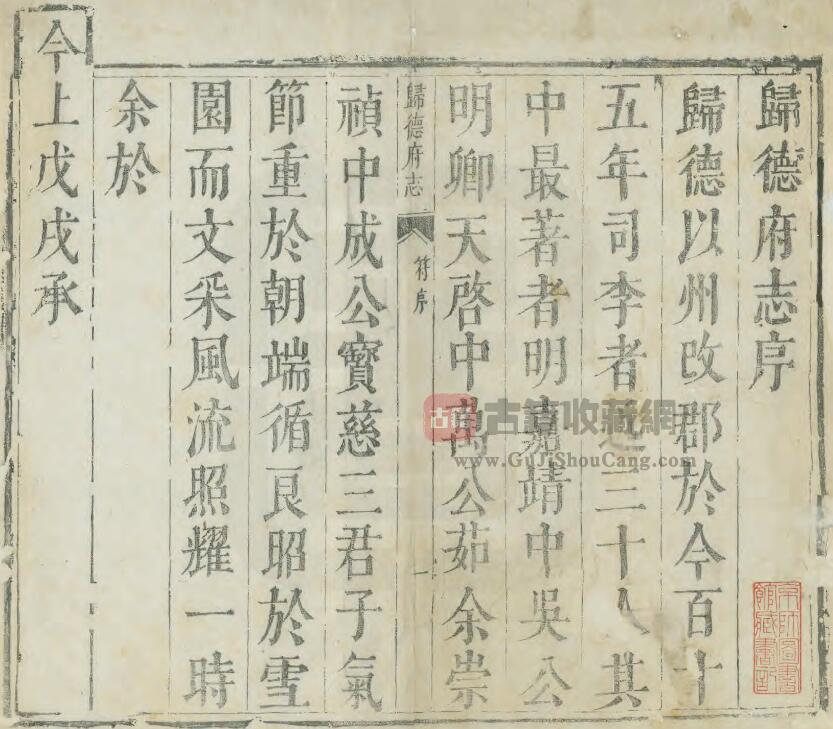 歸德府志序
歸德以州改郡於今百十
五年司李者三十人其
中最著者明嘉靖中吳公
明卿天啓中萬公茹余崇
歸德府志 符序 一
禎中成公寶慈三君子氣
節重於朝端循良昭於雪
園而文采風流照耀一時
余於
今上戊戌承
京師圖書
館藏書記
古籍
古籍收藏網
www.GuJiShouCang.com